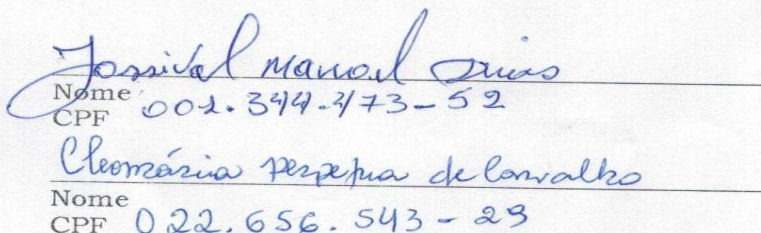 Jossival Manoel Dias
Nome
CPF 001.344.473-52
Cleomásia perpetua de Carvalho
Nome
CPF 022.656.543-29